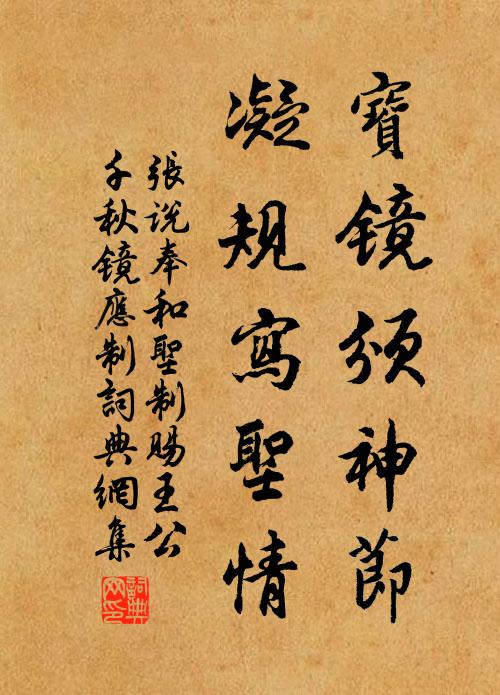 寶镜颁神節
凝規寫聖情
張说奉和聖制賜王公
千秋镜應制詞典網集
詞典
网印